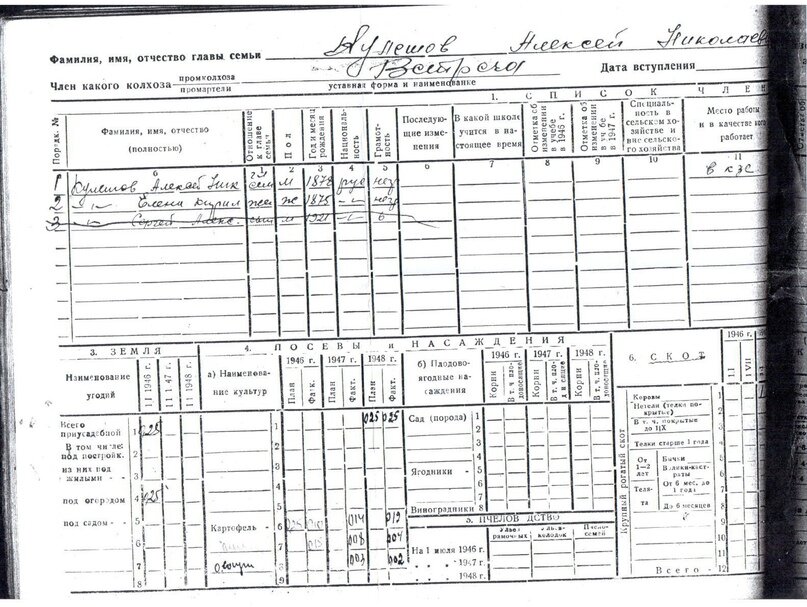 Фамилия, имя, отчество главы семьи Кулешов Алексей Николаев
Член какого колхоза промколхоза промартели Встреча Дата вступления
уставная форма и наименование
1. СПИСОК ЧЛЕН
Пор-дк. №
Фамилия, имя, отчество (полностью)
Отношение к главе семьи
Пол
Год и месяц рождения
Националь-ность
Грамот-ность
Последую-щие изме-нения
В какой школе учится в на-стоящее время
Отметка об изменении в учебе в 1946 г.
Отметка об изменении в уч бе в 1947 г.
Специаль-ность в сельском хо-зяйстве и вне сельско-го хозяйства
Место работы и в качестве кого работает
1 2 3 4 5 6 7 8 9 10 11
1 Кулешов Алексей Ник м 1878 рус в кзс.
2 -"- Елена ж 1875 -"-
3 -"- Сергей Алекс. м 1921 -"-
3. ЗЕМЛЯ
Наименование угодий
11 1946 г.
11 1 47 г.
11 1948 г.
Всего приусадебной 1 025
В том числе под постройк. 2
из них под жилыми - 3
под огородом 4 025
под садом - - 5
6
7
8
4. ПОСЕВЫ и НАСАЖДЕНИЯ
а) Наименова-ние культур
1946 г. 1947 г. 1948 г.
План Фак. План Факт. План Факт.
1 025 025
2
3
4
5
Картофель - 6 014 019
7 008 004
Овощи 8 003 002
9
б) Плодово-ягодные на-саждения
1946 г. 1947 г. 1948 г.
Корни
В т. ч. пло-доносящие
Корни
Корни
В т. ч. пло-доносящие
Сад (порода) 1
2
3
4
Ягодники - 5
6
7
Виноградники 8
5. ПЧЕЛОВ ДСТВО
Ульев рамочных
колодок
Пчело-семей
На 1 июля 1946 г.
" " " 1947 г.
" " " 1948 г.
6. СКОТ
1946 г.
1 I
1 VII
Крупный рогатый скот
Коровы 1
Нетели (телки по-крытые) 2
В т. ч. покрытые до 3
Телки старше 1 года 4
От 1—2 лет
Бычки 5
Волики-каст-раты 6
Теля-та
От 6 мес. до 1 года 7
До 6 месяцев 8
Всего - 12